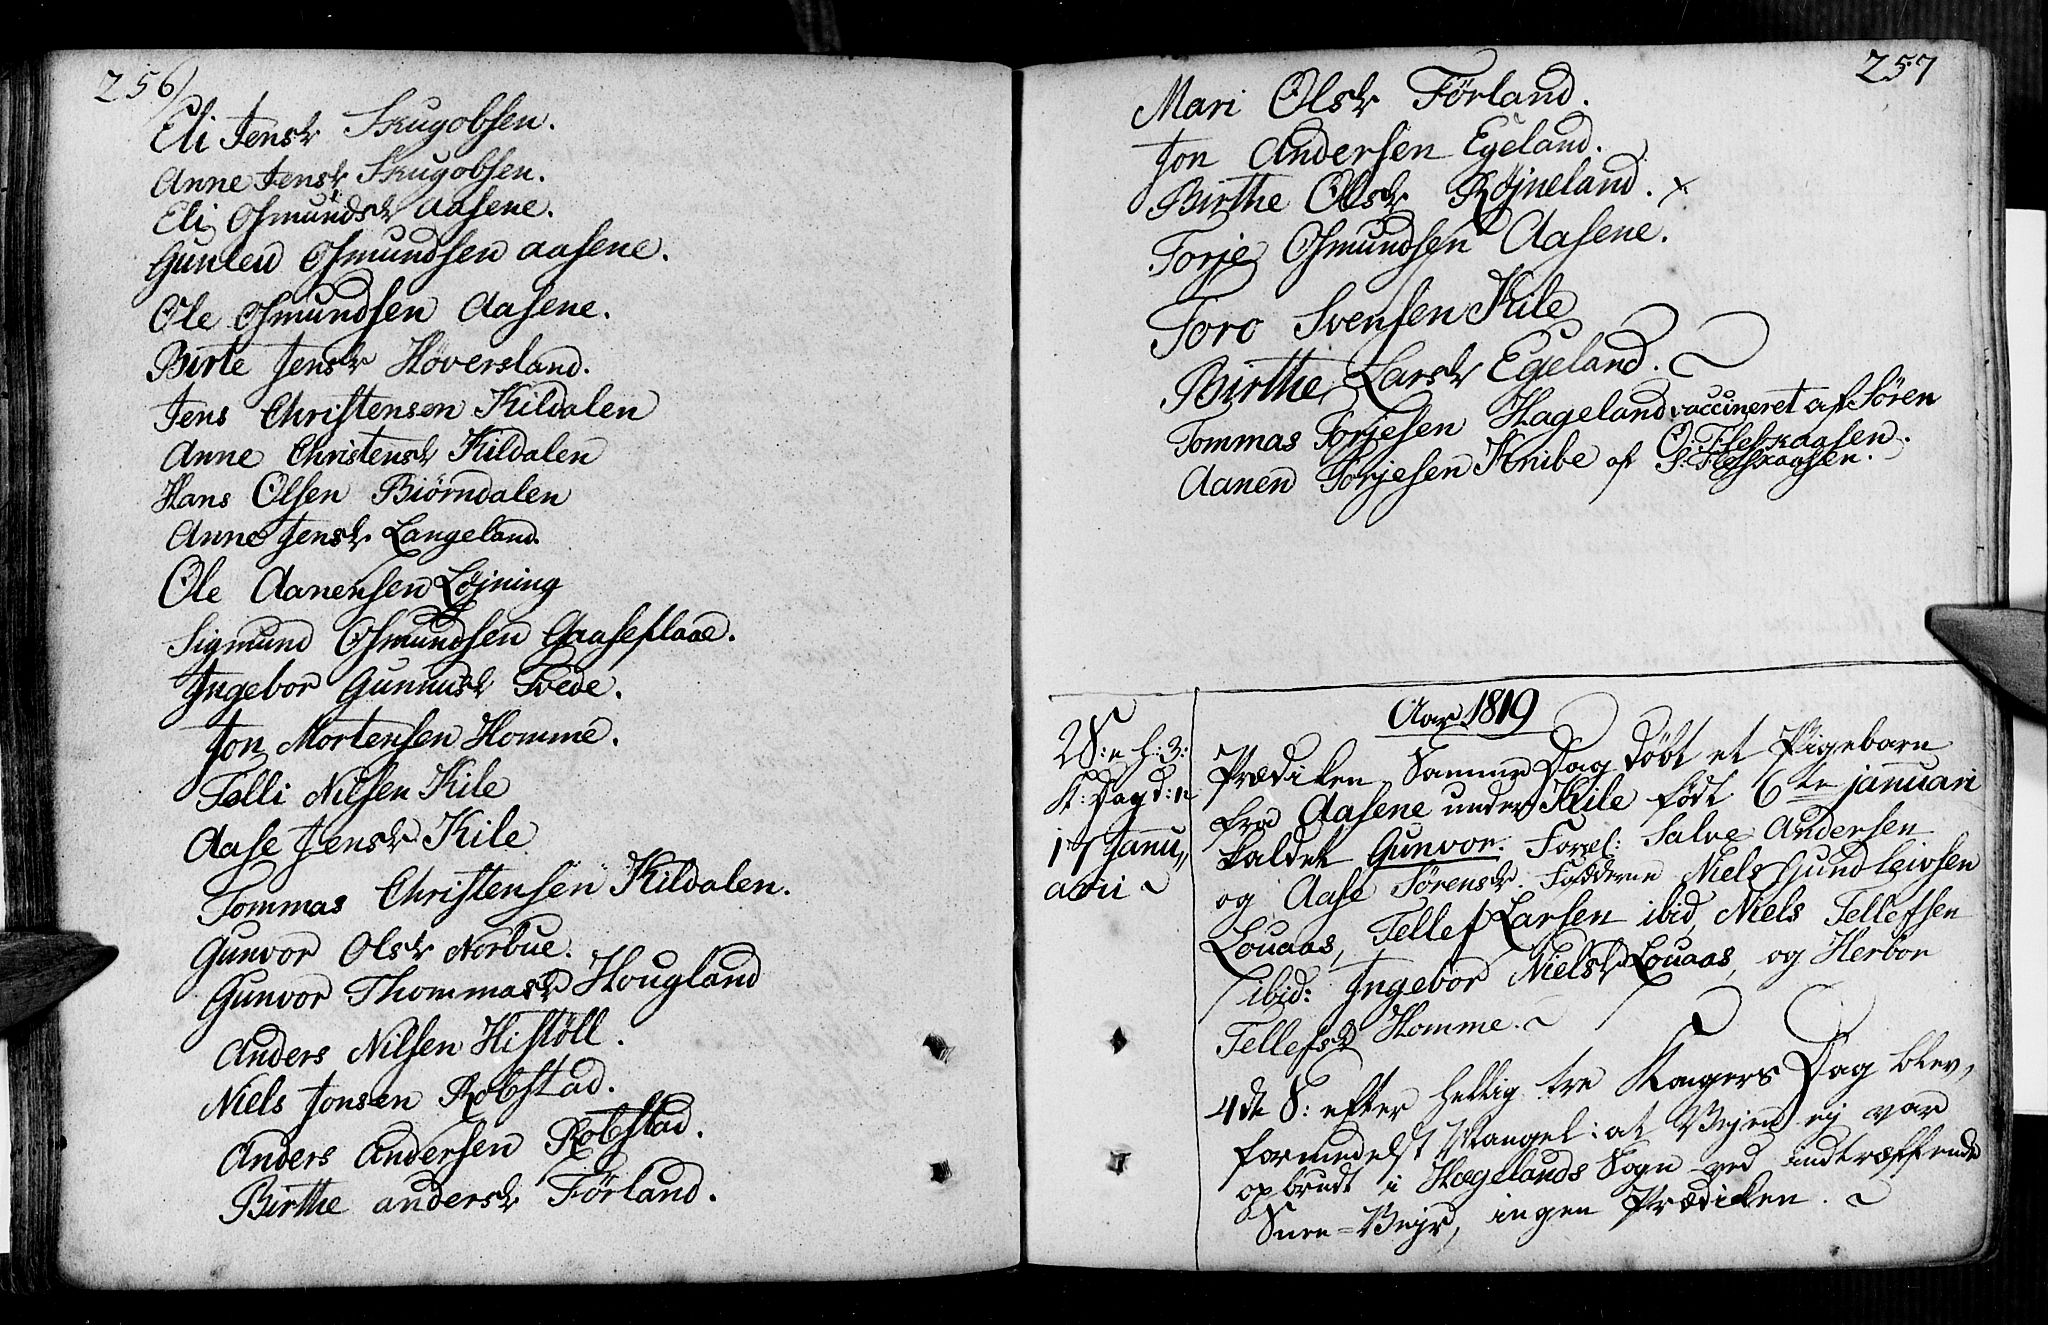 256
Eli Jensdr Skugobsen.
Anne Jensdr Skugobsen.
Eli Osmundsdr Aasene.
Gunleu Osmundsen Aasene.
Ole Osmundsen Aasene.
Birte Jensdr Höversland.
Jens Christensen Kildalen
Anne Christensdr Kildalen
Hans Olsen Biørndalen
Anne Jensdr Langeland.
Ole Aanensen Løjning
Sigmund Osmundsen Gaaseflaae.
Ingebor Gunnusdr Tvede.
Jon Mortensen Homme.
Telli Nilsen Kile
Aase Jensdr Kile
Tommas Christensen Kildalen.
Gunvor Olsdr Norbue.
Gunvor Thommasdr Hougland
Anders Nilsen Histöll.
Niels Jonsen Robstad.
Anders Andersen Robstad.
Birthe Andersdr Förland.
257
Mari Olsdr Förland.
Jon Andersen Egeland.
Birthe Olsdr Røjneland.
Torje Osmundsen Aasene.
Toro Svensen Kile
Birthe Larsdr Egeland.
Tommas Torjesen Hageland vaccineret af Sören
O: Fleskaasen.
Aanen Torjesen Knibe af S: Fleskaasen.
Aar 1819
2 S: e h: 3:
K: Dag d: 17
17 Janu,,
arii
Prædiken, Samme Dag døbt et Pigebarn
fra Aasene under Kile født 6te januari
kaldet Gunvor. Foræl: Salve Andersen
og Aase Sörensdr. Fadderne Niels Gundleivsen
Louaas, Tellef Larsen ibid, Niels Tellefsen
ibid: Ingebor Nielsdr Louaas, og Herbor
Tellefsdr Homme.
4de S: efter hellig tre Kongers Dag blev,
formedelst Mangel: at Vejen ej var
opbrudt i Hægelands Sogn ved indtræffende
Snee-Vejr, ingen Prædiken.